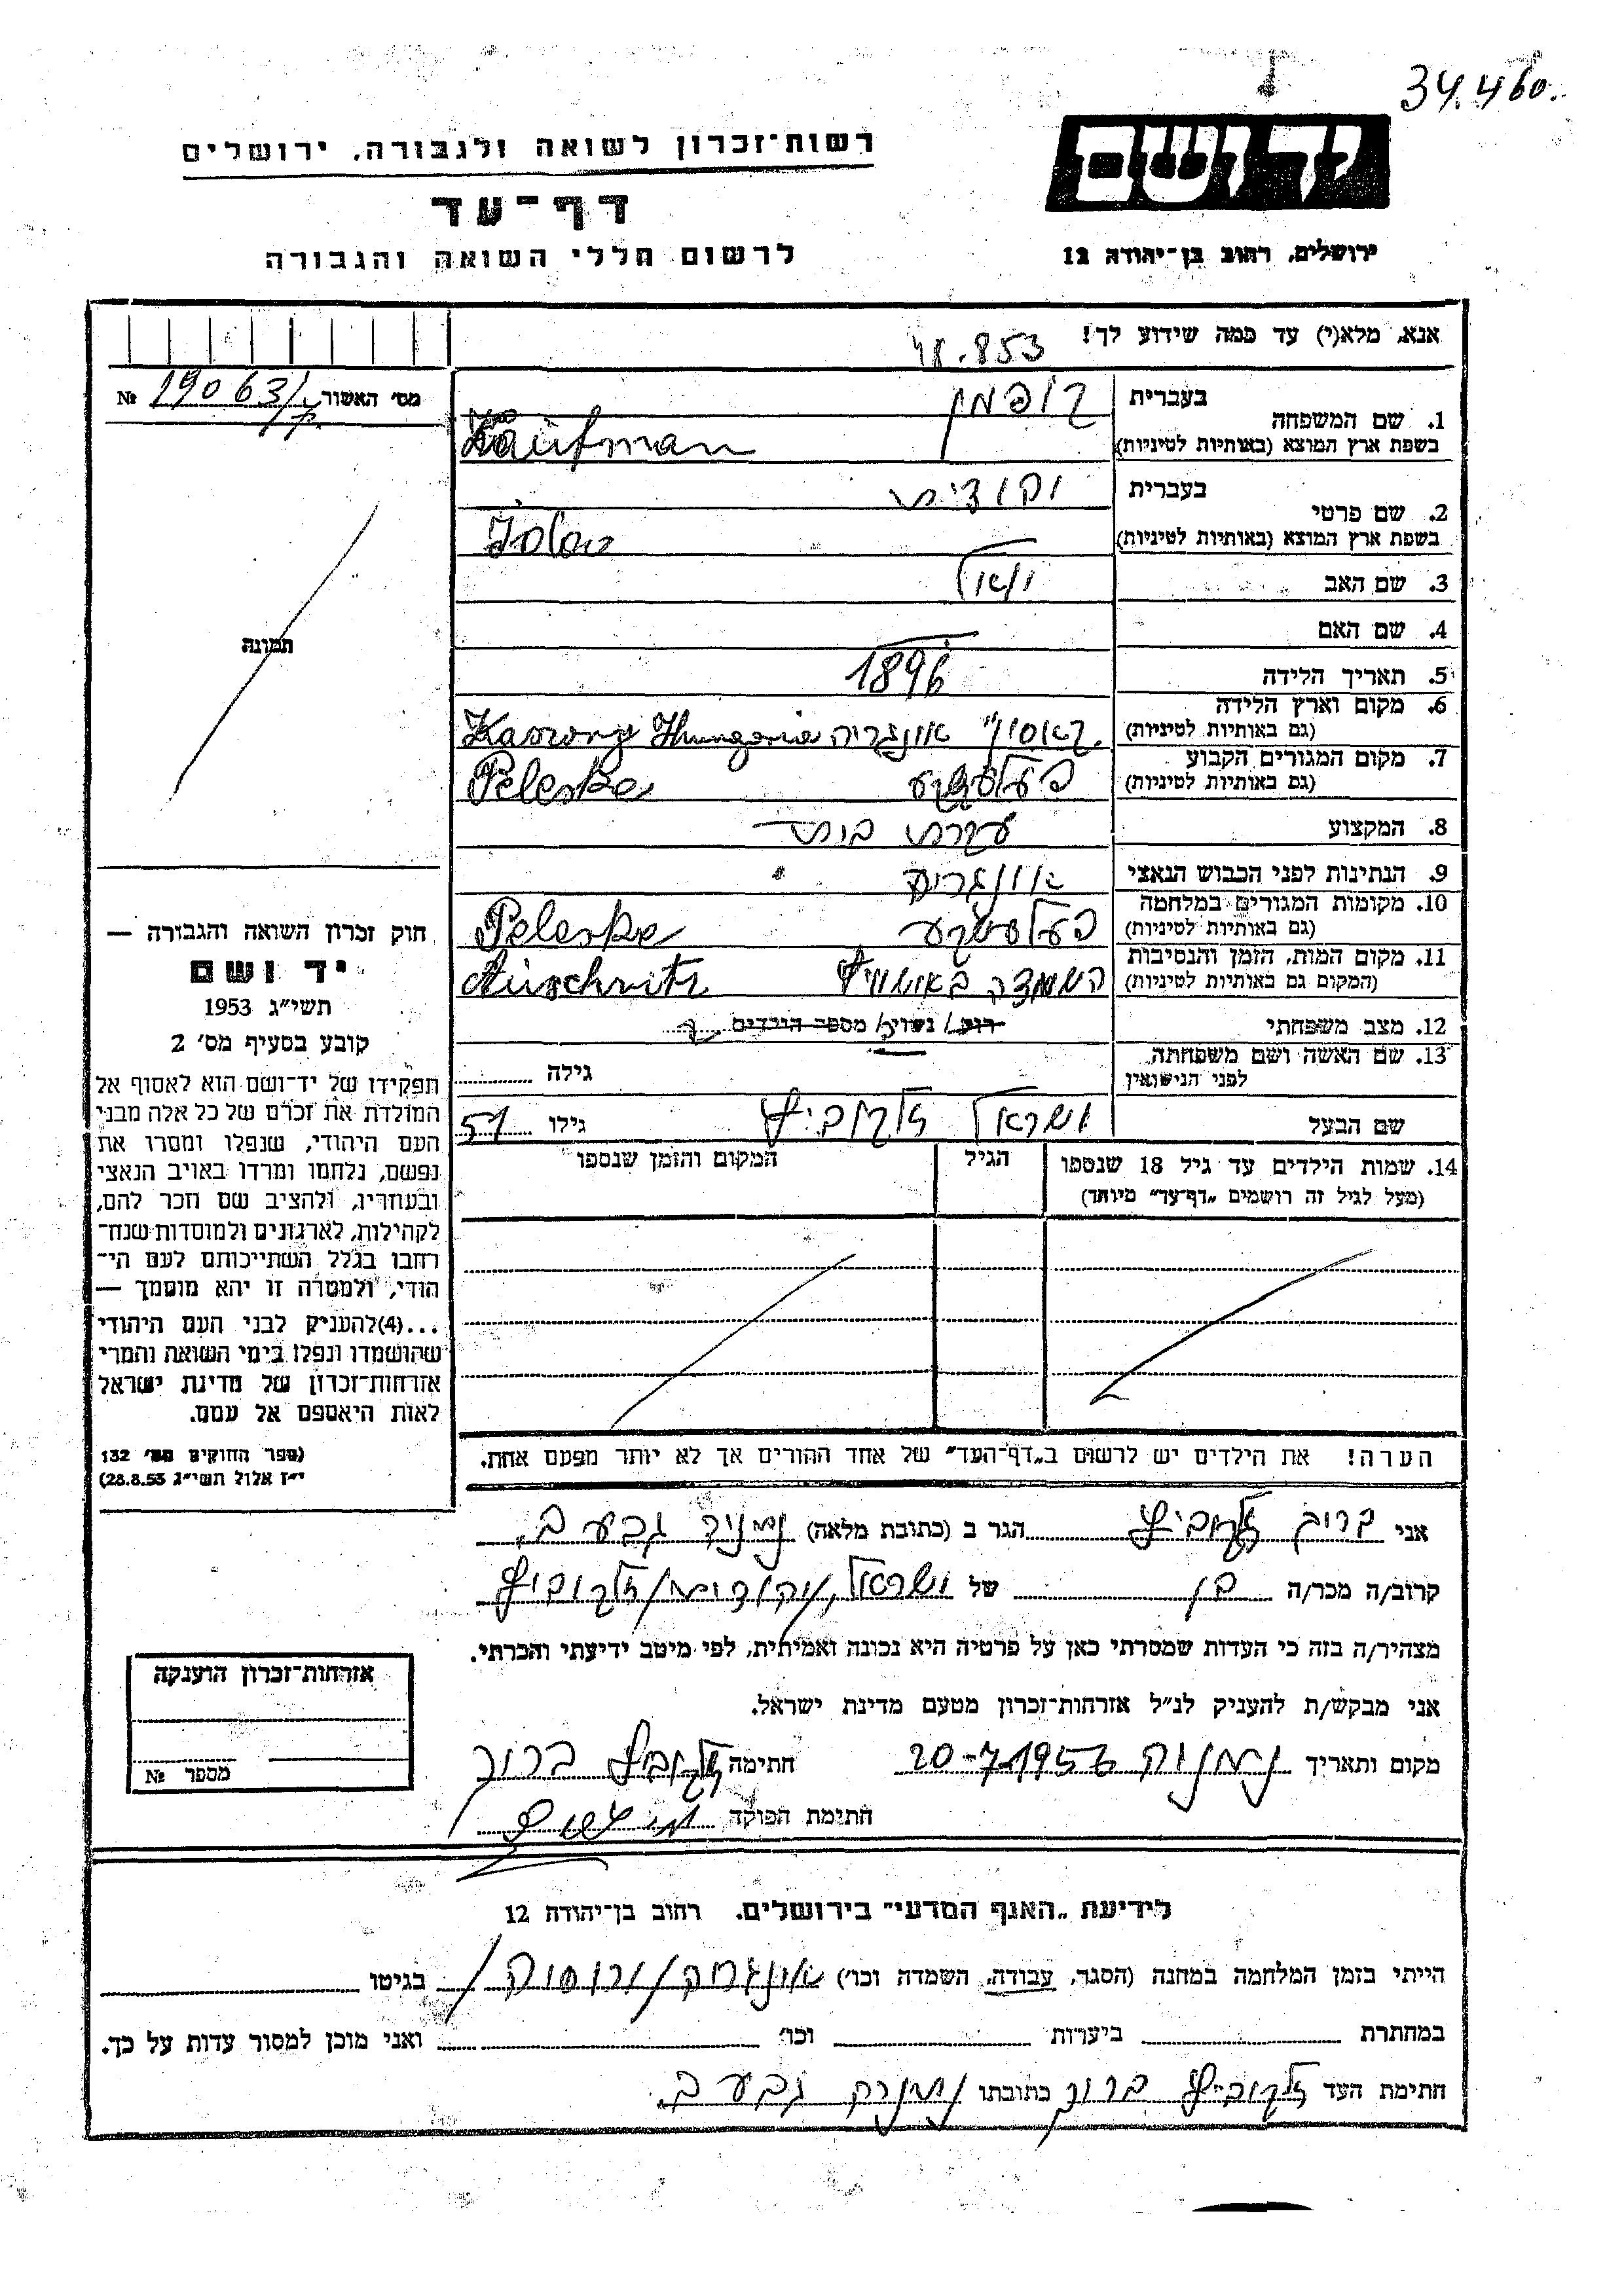 34.460.
יד ושם
רשות־זכרון לשואה ולגבורה, ירושלים
דף־עד
לרשום חללי השואה והגבורה
ירושלים, רחוב בן־יהודה 12
אנא, מלא(י) עד כמה שידוע לך!
853
מס' האשור № 19063/ק
תמונה
1. שם המשפחה
בעברית קופמן
בשפת ארץ המוצא (באותיות לטיניות) Kaufman
2. שם פרטי
בעברית יהודית
בשפת ארץ המוצא (באותיות לטיניות)
3. שם האב יואל
4. שם האם
5. תאריך הלידה 1896
6. מקום וארץ הלידה
(גם באותיות לטיניות) קאסוני אונגריה Kaszony Hungaria
7. מקום המגורים הקבוע
(גם באותיות לטיניות) פעלעשקע Peleske
8. המקצוע עקרת בית
9. הנתינות לפני הכבוש הנאצי
10. מקומות המגורים במלחמה
(גם באותיות לטיניות) פעלעשקע Peleske
11. מקום המות, הזמן והנסיבות
(המקום גם באותיות לטיניות) הושמדה באושוויץ Auschwitz
12. מצב משפחתי רוק/ נשוי/ מספר הילדים
13. שם האשה ושם משפחתה
לפני הנישואין
גילה
שם הבעל ישראל זלקוביץ גילו 51
14. שמות הילדים עד גיל 18 שנספו
(מעל לגיל זה רושמים "דף־עד" מיוחד)
הגיל
המקום והזמן שנספו
הערה! את הילדים יש לרשום ב"דף־העד" של אחד ההורים אך לא יותר מפעם אחת.
חוק זכרון השואה והגבורה —
יד ושם
תשי"ג 1953
קובע בסעיף מס' 2
תפקידו של יד־ושם הוא לאסוף אל
המולדת את זכרם של כל אלה מבני
העם היהודי, שנפלו ומסרו את
נפשם, נלחמו ומרדו באויב הנאצי
ובעוזריו, ולהציב שם וזכר להם,
לקהילות, לארגונים ולמוסדות שנח־
רבו בגלל השתייכותם לעם הי־
הודי, ולמטרה זו יהא מוסמך —
...(4)להעניק לבני העם היהודי
שהושמדו ונפלו בימי השואה והמרי
אזרחות־זכרון של מדינת ישראל
לאות היאספם אל עמם.
(ספר החוקים מס' 132
י"ז אלול תשי"ג 28.8.53)
אני ברוך זלקוביץ הגר ב (כתובת מלאה) גבעה ב.
קרוב/ה מכר/ה בן של ישראל, יהודית/ זלקוביץ
מצהיר/ה בזה כי העדות שמסרתי כאן על פרטיה היא נכונה ואמיתית, לפי מיטב ידיעתי והכרתי.
אני מבקש/ת להעניק לנ"ל אזרחות־זכרון מטעם מדינת ישראל.
מקום ותאריך 20-7-1956 חתימה זלקוביץ ברוך
חתימת הפוקד
אזרחות־זכרון הוענקה
מספר №
לידיעת "האגף המדעי" בירושלים. רחוב בן־יהודה 12
הייתי בזמן המלחמה במחנה (הסגר, עבודה, השמדה וכו') אונגריה/ורוסיה/ בגיטו
במחתרת ביערות וכו' ואני מוכן למסור עדות על כך.
חתימת העד זלקוביץ ברוך כתובתו גבעה ב.